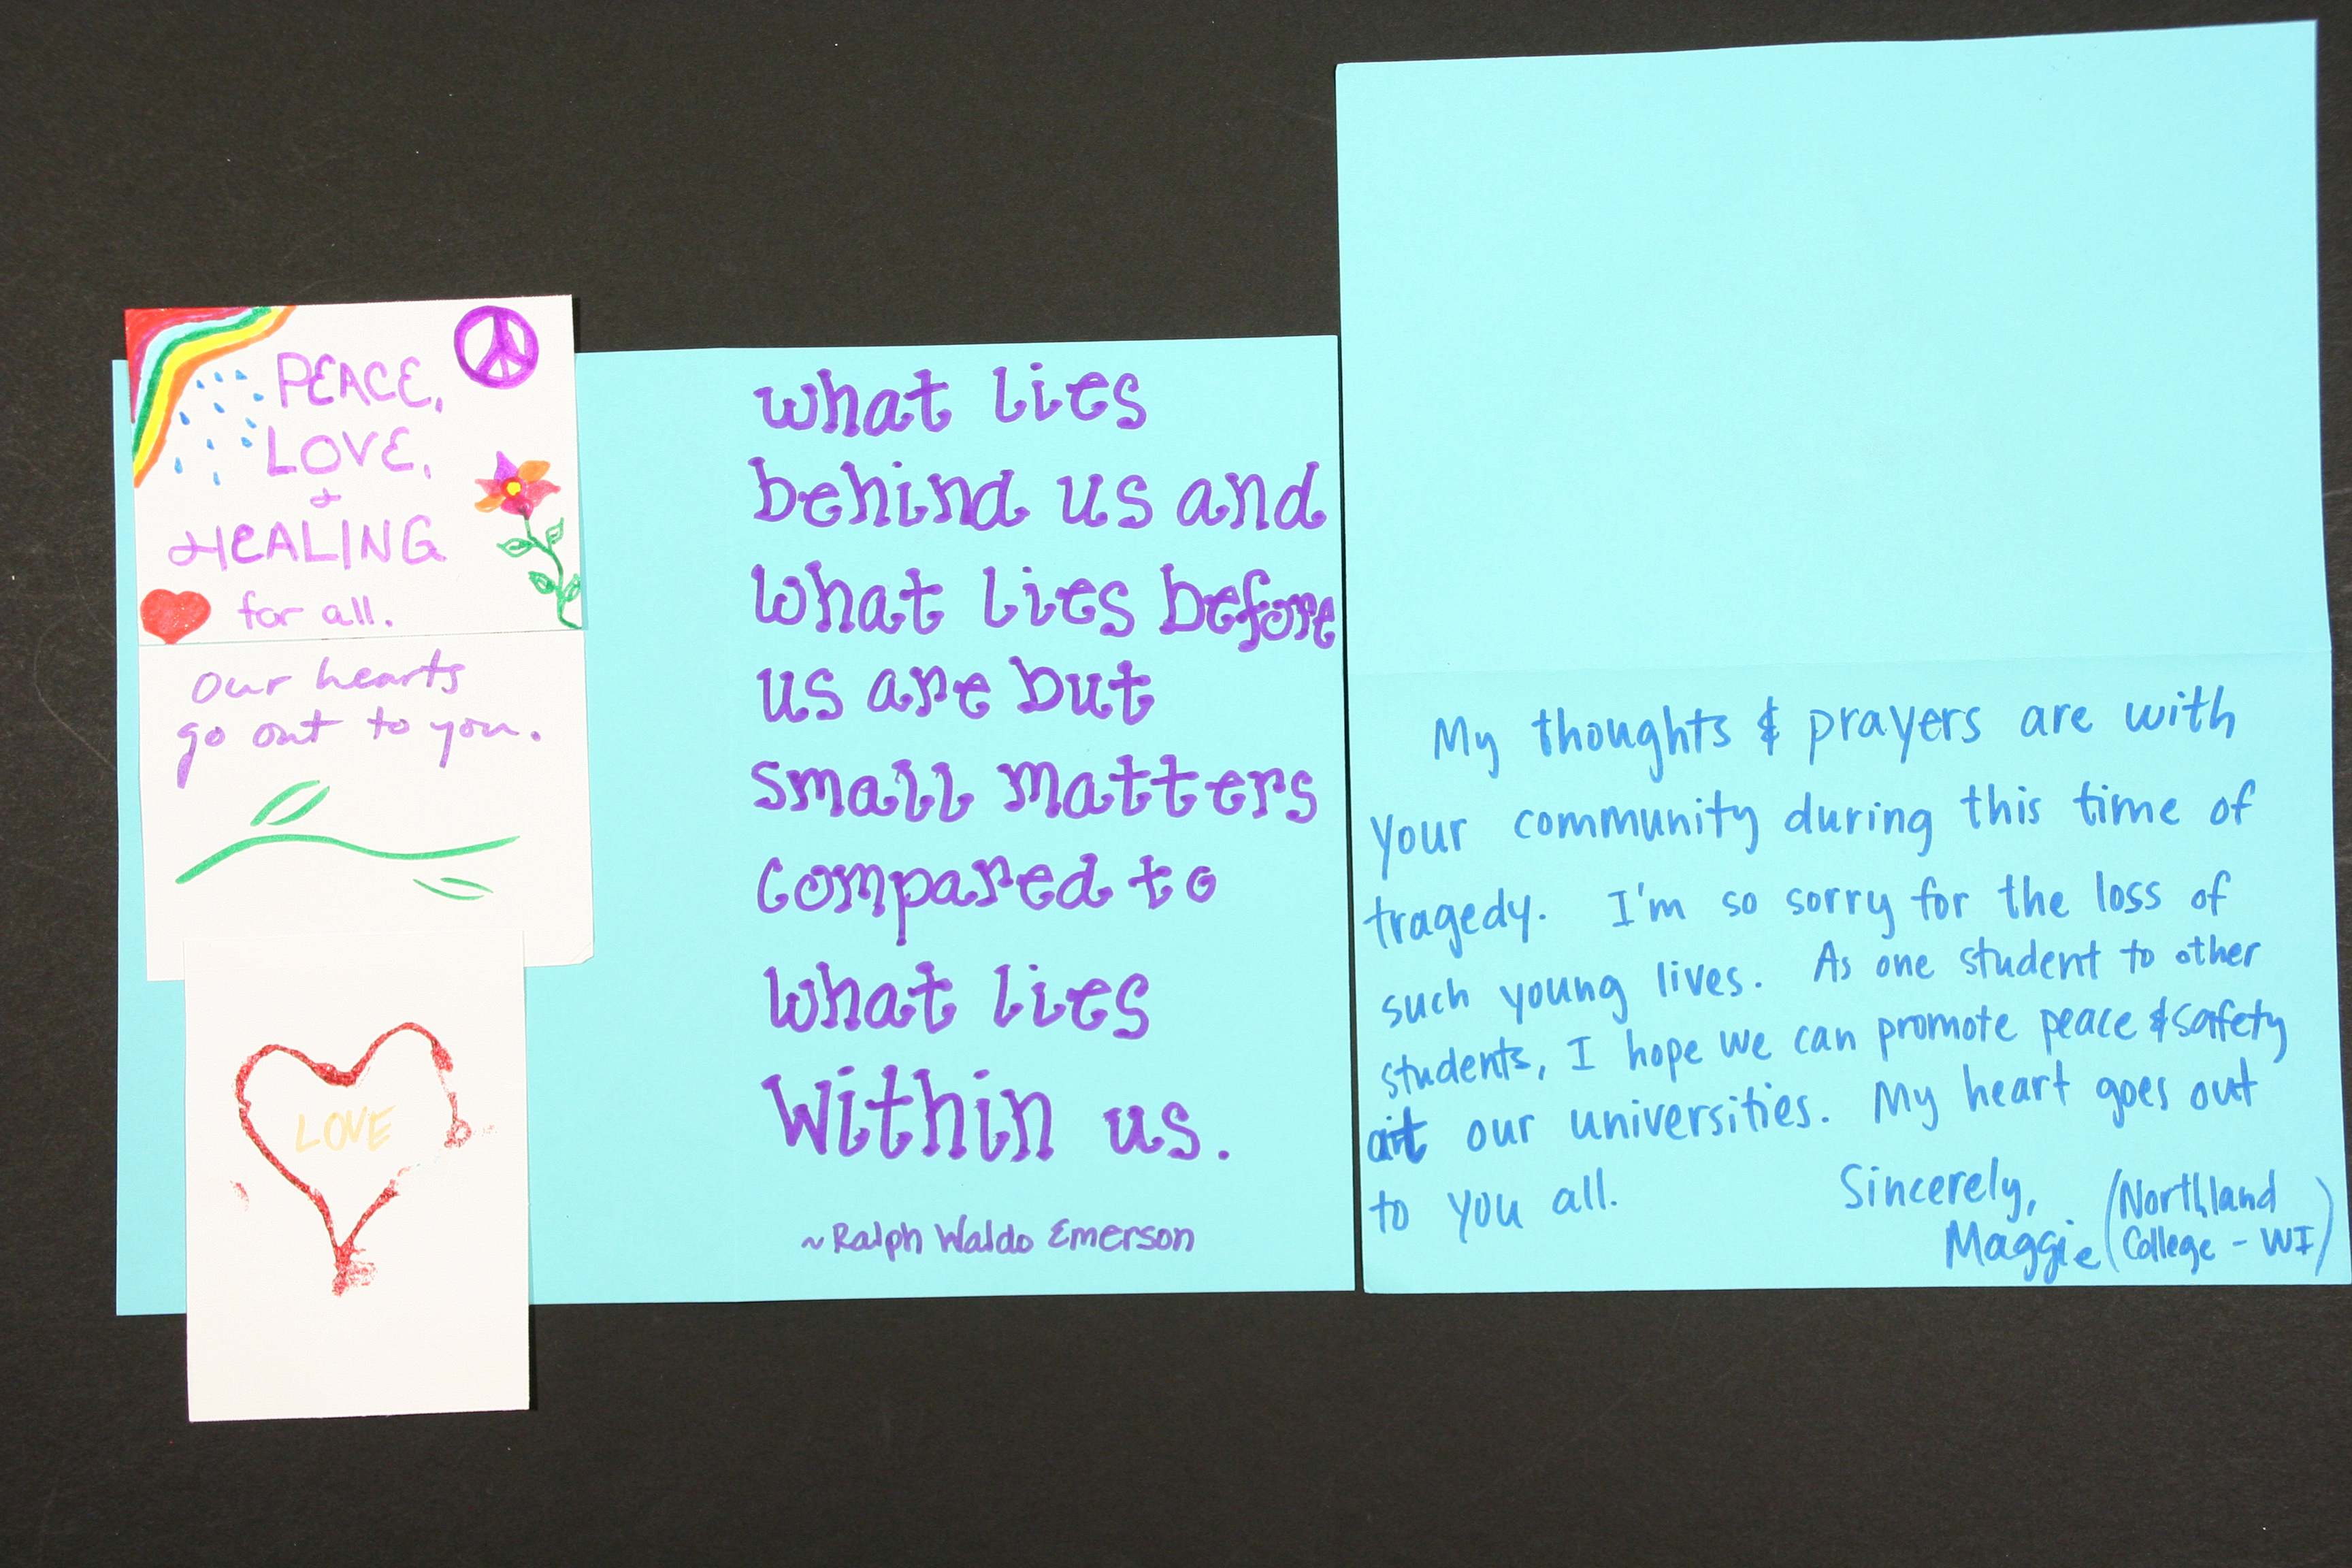 PEACE,
LOVE,
&
HEALING
for all.
Our hearts
go out to you.
LOVE
what lies
behind us and
what lies before
us are but
small matters
compared to
what lies
within us.
~Ralph Waldo Emerson
My thoughts & prayers are with
your community during this time of
tragedy. I'm so sorry for the loss of
such young lives. As one student to other
students, I hope we can promote peace & safety
at our universities. My heart goes out
to you all.
Sincerely,
Maggie (Northland
College - WI)